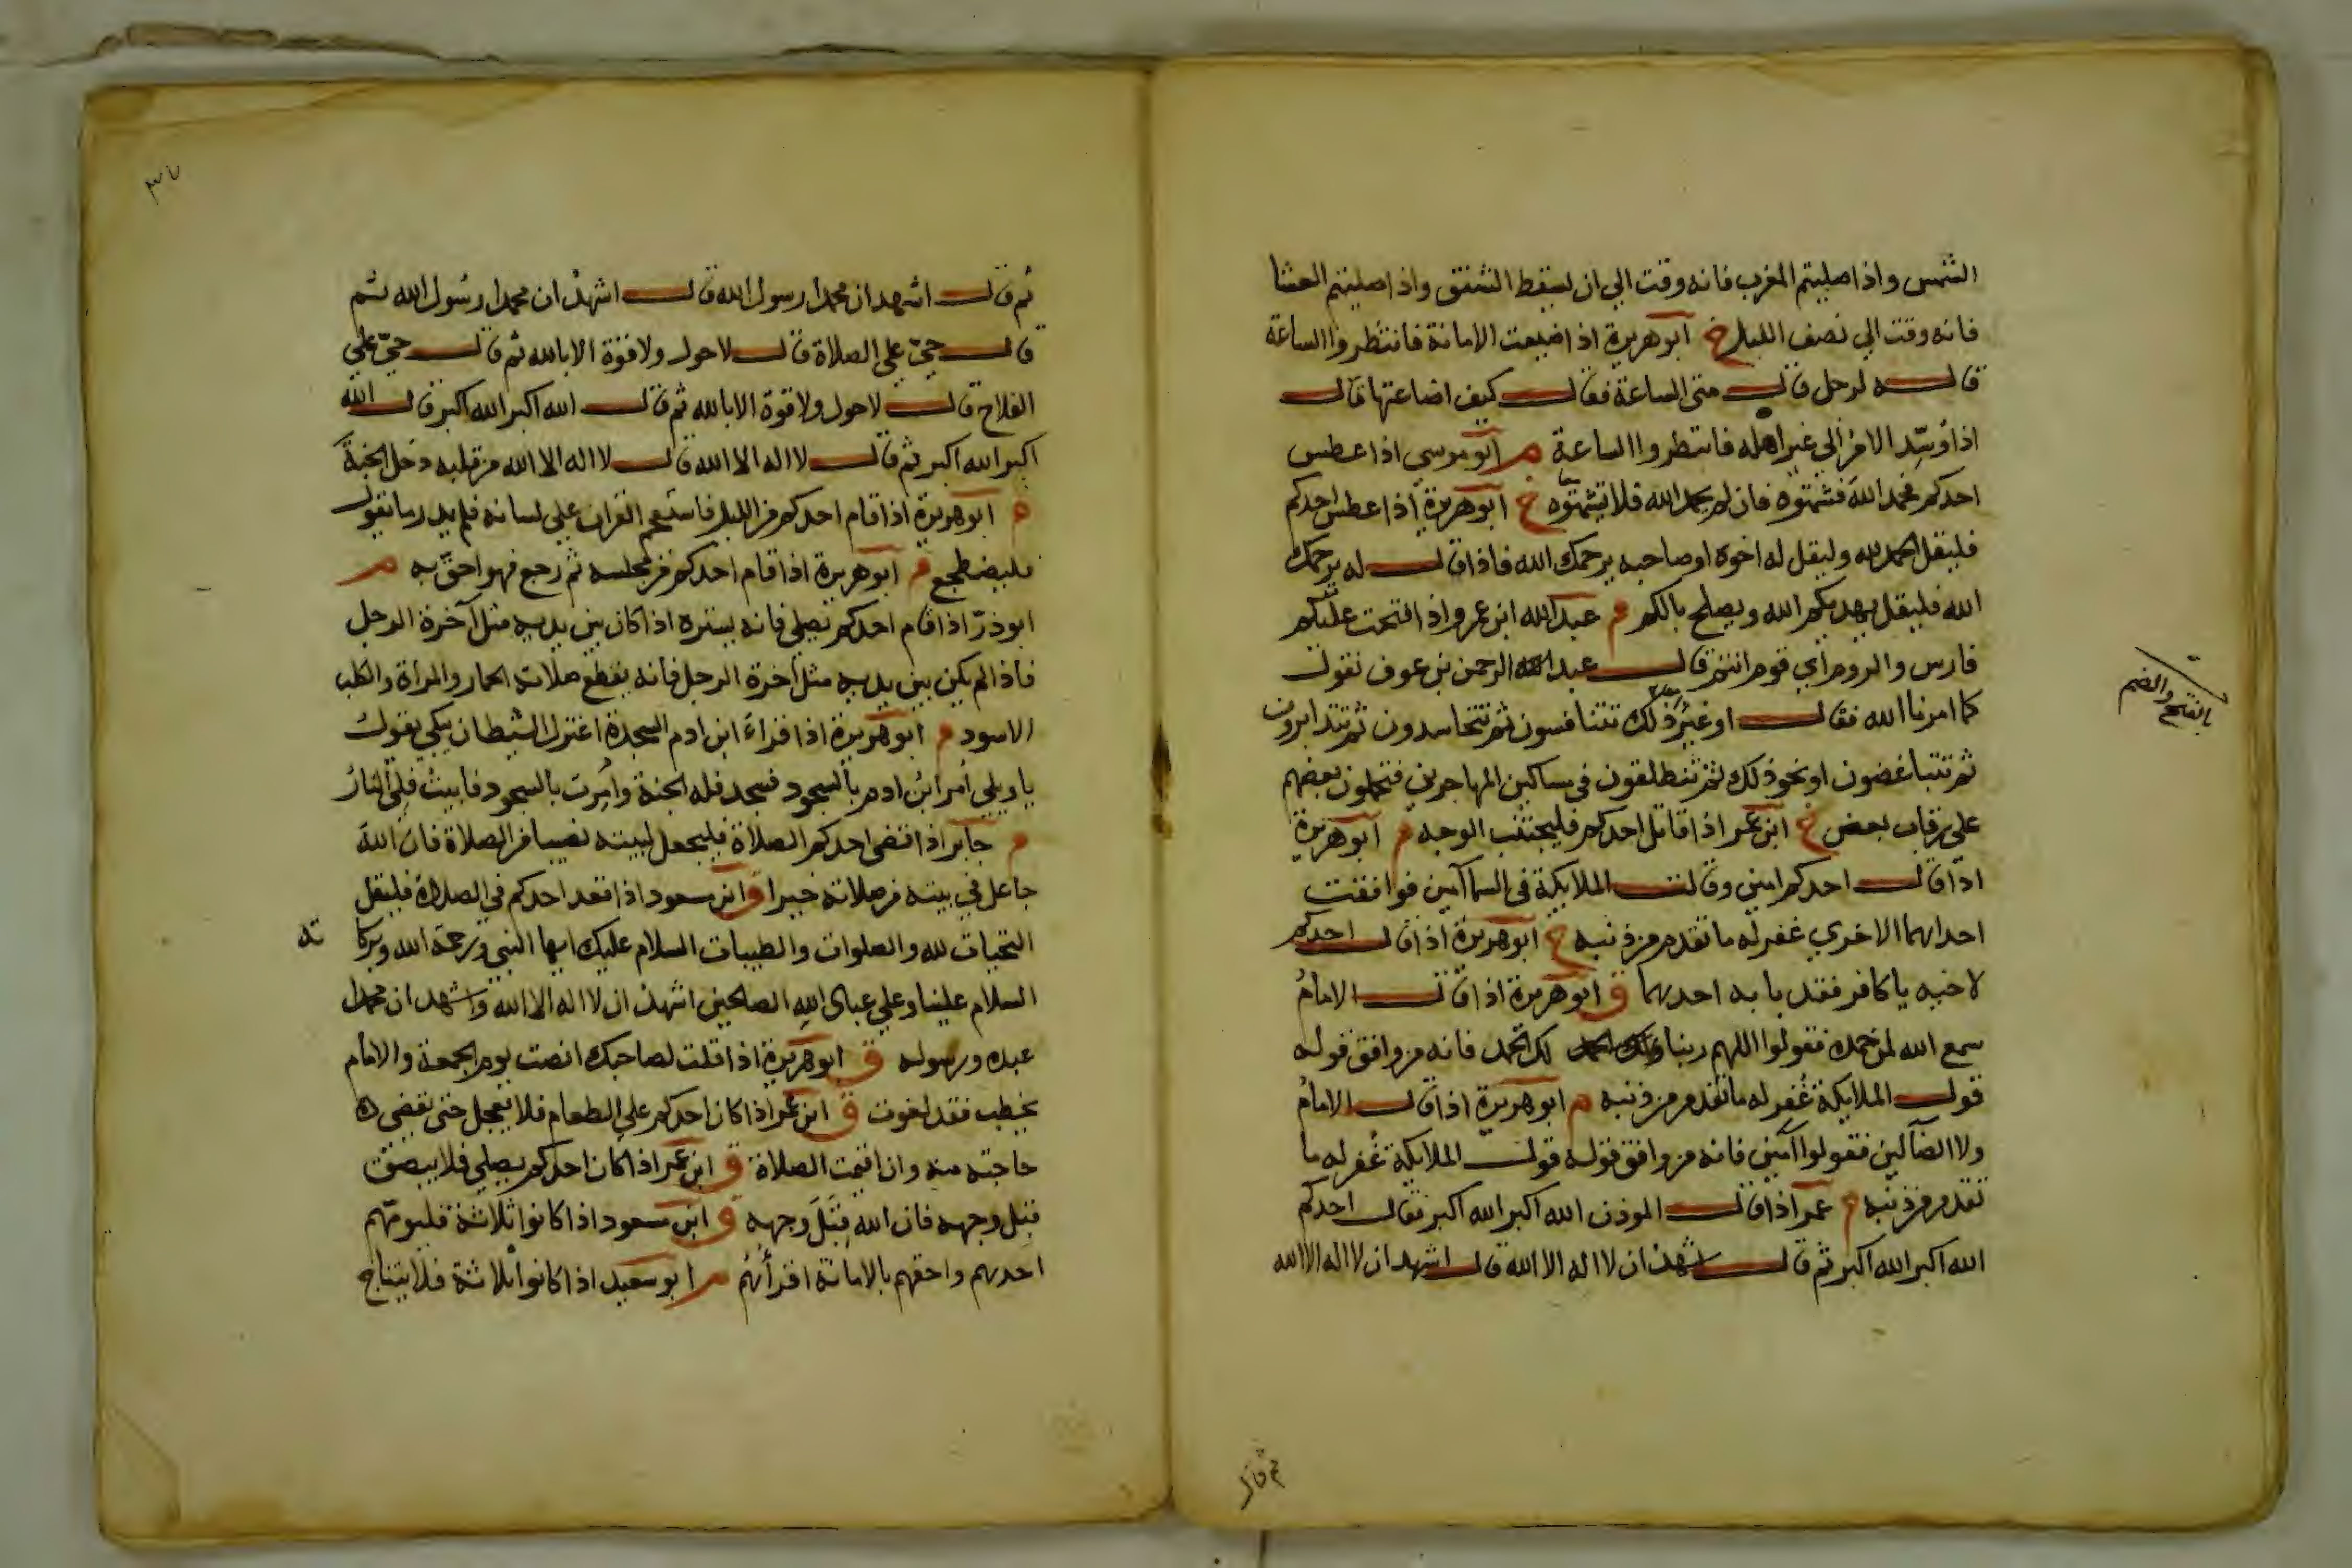 الشمس واذا صليتم المغرب فانه وقت الي ان يسقط الشفق واذا صليتم العشا
فانه وقت الي نصف الليل خ ابو هريرة اذا ضيعت الامانة فانتظروا الساعة
قاله لرجل قال متى الساعة فقال كيف اضاعتها قال
اذا وسد الامر الي غير اهله فانتظروا الساعة م ابو موسي اذا عطس
احدكم فحمد الله فشمتوه فان لم يحمد الله فلا تشمتوه خ ابو هريرة اذا عطس احدكم
فليقل الحمد لله وليقل له اخوه او صاحبه يرحمك الله فاذا قال له يرحمك
الله فليقل يهديكم الله ويصلح بالكم م عبد الله ابن عمرو اذا فتحت عليكم
فارس والروم اي قوم انتم قال عبد الرحمن بن عوف نقول
كما امرنا الله فقال او غير ذلك تتنافسون ثم تتحاسدون ثم تتدابرون
بالفتح والضم
ثم تتباغضون او نحو ذلك ثم تنطلقون في مساكين المهاجرين فتحملون بعضهم
على رقاب بعض خ ابن عمر اذا قاتل احدكم فليجتنب الوجه م ابو هريرة
اذا قال احدكم امين وقالت الملايكة في السما آمين فوافقت
احداهما الاخري غفر له ما تقدم من ذنبه خ ابو هريرة اذا قال احدكم
لاخيه يا كافر فقد با به احدهما ق ابو هريرة اذا قال الامام
سمع الله لمن حمده فقولوا اللهم ربنا لك الحمد فانه من وافق قوله
قول الملايكة غفر له ما تقدم من ذنبه م ابو هريرة اذا قال الامام
ولا الضالين فقولوا آمين فانه من وافق قوله قول الملايكة غفر له ما
تقدم من ذنبه م عمر اذا قال الموذن الله اكبر الله اكبر فقال احدكم
الله اكبر الله اكبر ثم قال اشهد ان لا اله الا الله قال اشهد ان لا اله الا الله
ثم قال
٣٧
ثم قال اشهد ان محمدا رسول الله قال اشهد ان محمدا رسول الله ثم
قال حي على الصلاة قال لا حول ولا قوة الا بالله ثم قال حي علي
الفلاح قال لا حول ولا قوة الا بالله ثم قال الله اكبر الله اكبر قال الله
اكبر الله اكبر ثم قال لا اله الا الله قال لا اله الا الله من قلبه دخل الجنة
م ابو هريرة اذا قام احدكم من الليل فاستعجم القران علي لسانه فلم يدر ما يقول
فليضطجع م ابو هريرة اذا قام احدكم من مجلسه ثم رجع فهو احق به م
ابو ذر اذا قام احدكم يصلي فانه يستره اذا كان بين يديه مثل آخرة الرحل
فاذا لم يكن بين يديه مثل آخرة الرحل فانه يقطع صلاته الحمار والمرأة والكلب
الاسود م ابو هريرة اذا قرأ ابن ادم السجدة اعتزل الشيطان يبكي يقول
يا ويلي أمر ابن ادم بالسجود فسجد فله الجنة وأمرت بالسجود فابيت فلي النار
م جابر اذا قضى احدكم الصلاة فليجعل لبيته نصيبا من الصلاة فان الله
جاعل في بيته من صلاته خيرا ق ابن مسعود اذا قعد احدكم في الصلاة فليقل
التحيات لله والصلوات والطيبات السلام عليك ايها النبي ورحمة الله وبركا ته
السلام علينا وعلي عباد الله الصالحين اشهد ان لا اله الا الله واشهد ان محمدا
عبده ورسوله ق ابو هريرة اذا قلت لصاحبك انصت يوم الجمعة والامام
يخطب فقد لغوت ق ابن عمر اذا كان احدكم علي الطعام فلا يعجل حتى يقضي
حاجته منه وان اقيمت الصلاة ق ابن عمر اذا كان احدكم يصلي فلا يبصق
قبل وجهه فان الله قبل وجهه ق ابن مسعود اذا كانوا ثلاثة فليومهم
احدهم واحقهم بالامامة اقرأهم م ابو سعيد اذا كانوا ثلاثة فلا يتناج